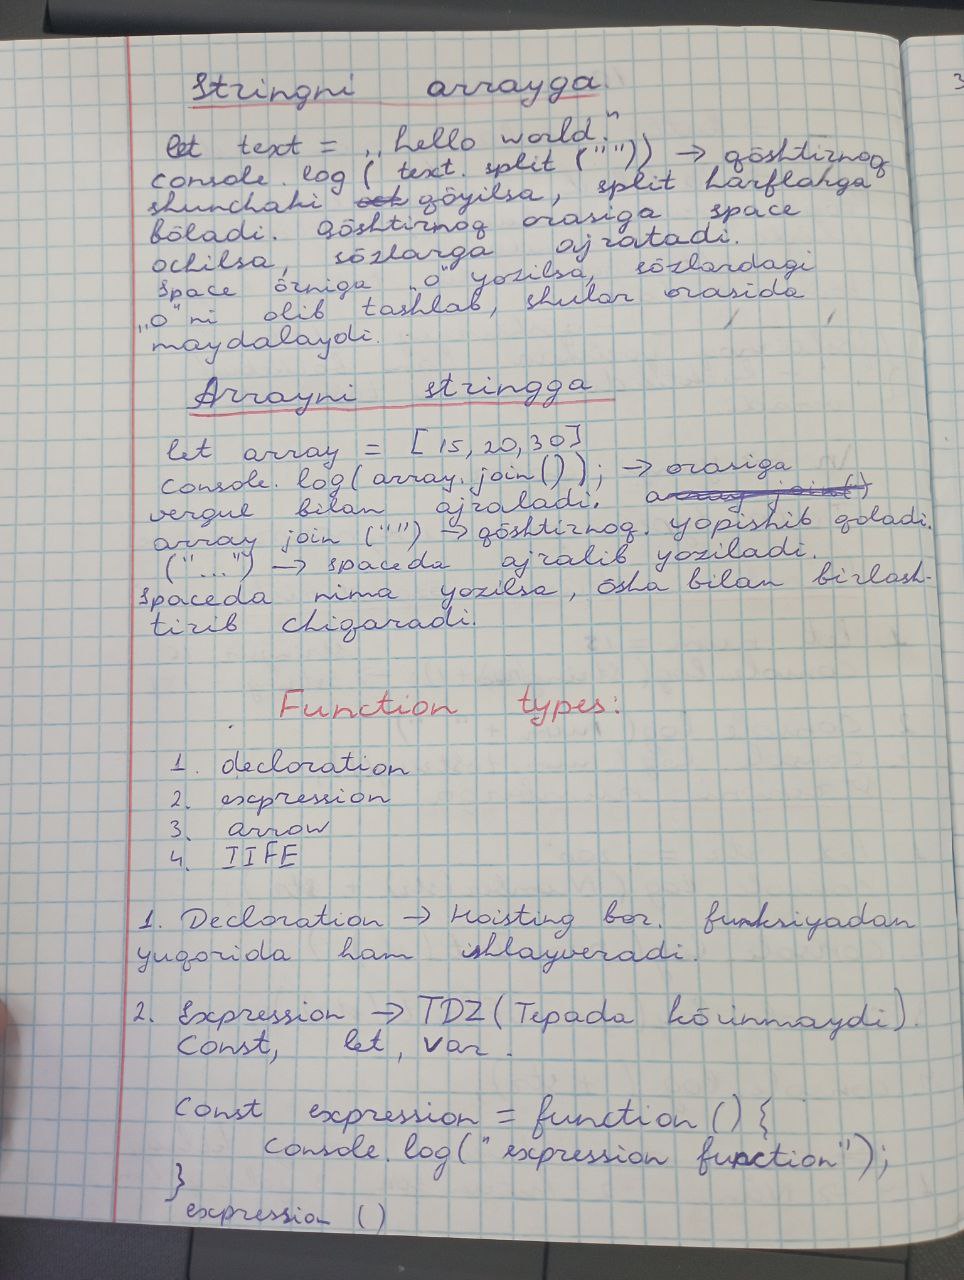 Stringni arrayga.
let text = „hello world."
console.log( text. split ("")) → qōshtirnoq
shunchaki qōyilsa, split harflarga
bōladi. qōshtirnoq orasiga space
ochilsa, sōzlarga ajratadi.
space ōrniga „o" yozilsa, sōzlardagi
„o" ni olib tashlab, shular orasida
maydalaydi.
Arrayni stringga
let array = [15, 20, 30]
console.log(array.join()); → orasiga
vergul bilan ajraladi. array join()
array join ("") → qōshtirnoq. yopishib qoladi.
("...") → spaceda ajralib yoziladi.
spaceda nima yozilsa, ōsha bilan birlash-
tirib chiqaradi.
Function types:
1. decloration
2. expression
3. arrow
4. IIFE
1. Decloration → Hoisting bor. funksiyadan
yuqorida ham ishlayveradi.
2. Expression → TDZ (Tepada kōrinmaydi).
Const, let, var.
const expression = function () {
console.log("expression function");
}
expression ()
3